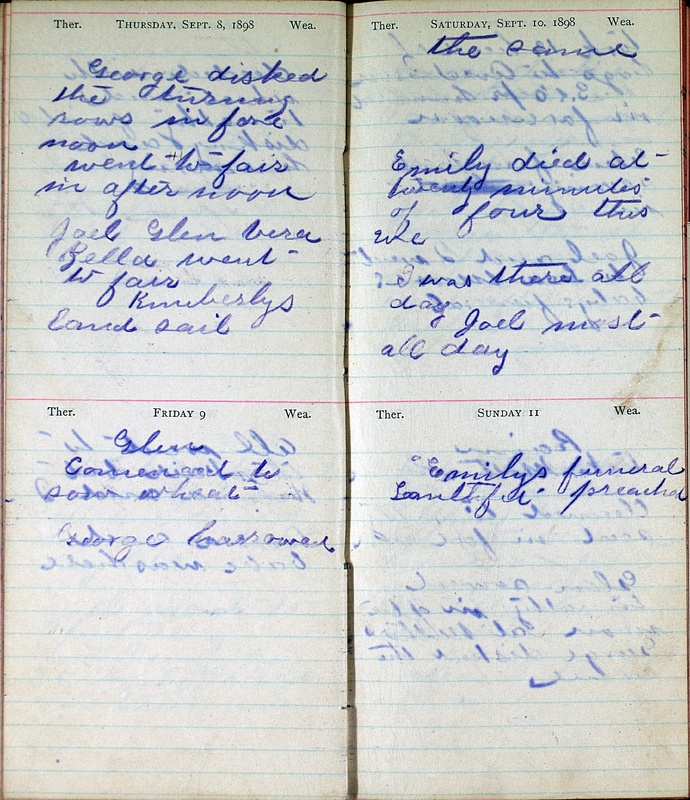 Ther. THURSDAY, SEPT. 8, 1898 Wea.
George disked
the turning
rows in fore
noon
went to fair
in after noon
Joel Glen Vera
Bella went
to fair
Kimberlys
Land sail
Ther. FRIDAY 9 Wea.
Glen
Comenced to
sow wheat
George harrowed
Ther. SATURDAY, SEPT. 10, 1898 Wea.
the same
Emily died at
twenty minutes
of four this
eve
I was there all
day
Joel most
all day
Ther. SUNDAY 11 Wea.
Emilys funeral
preached